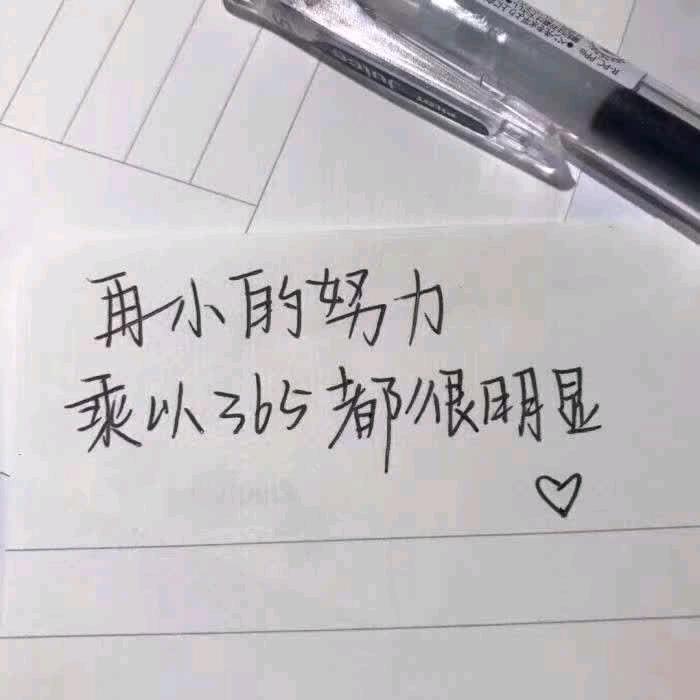 Juice
PILOT
再小的努力
乘以365都很明显